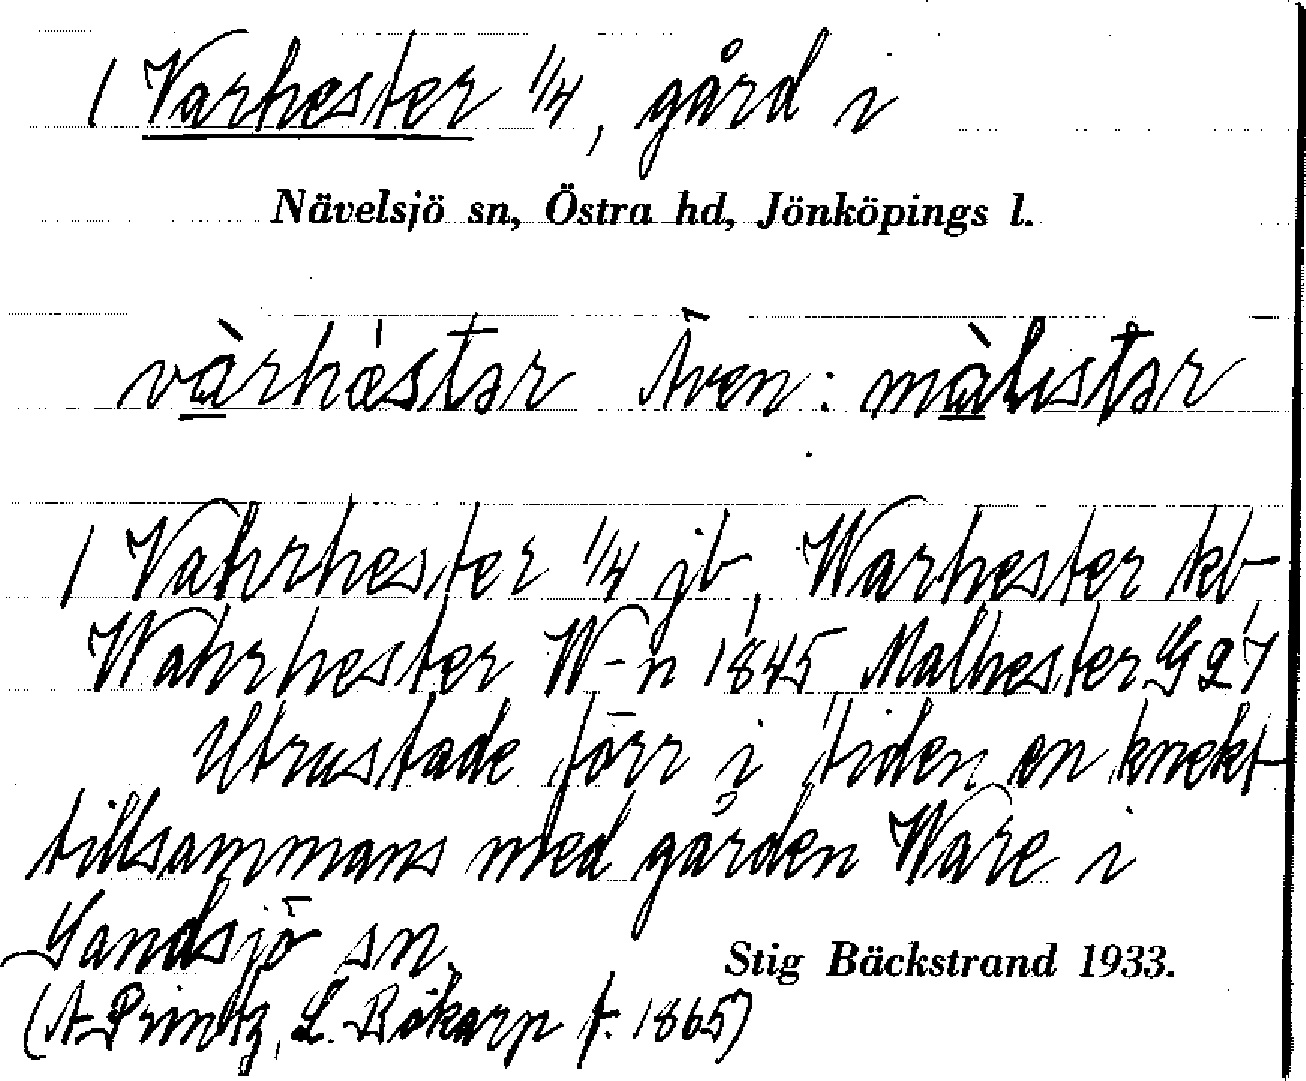 / Varhester 1/4, gård i
Nävelsjö sn, Östra hd, Jönköpings l.
vàrhæ̀stər Även: màlıstər
/ Vahrhester 1/4 jb, Warhester kb
Wahrhester W-n 1845 Malhester G 27
Utrustade förr i tiden en knekt
tillsammans med gården Ware i
Sandsjö sn.
Stig Bäckstrand 1933.
(A. Printz, L. Bökarp f. 1865)